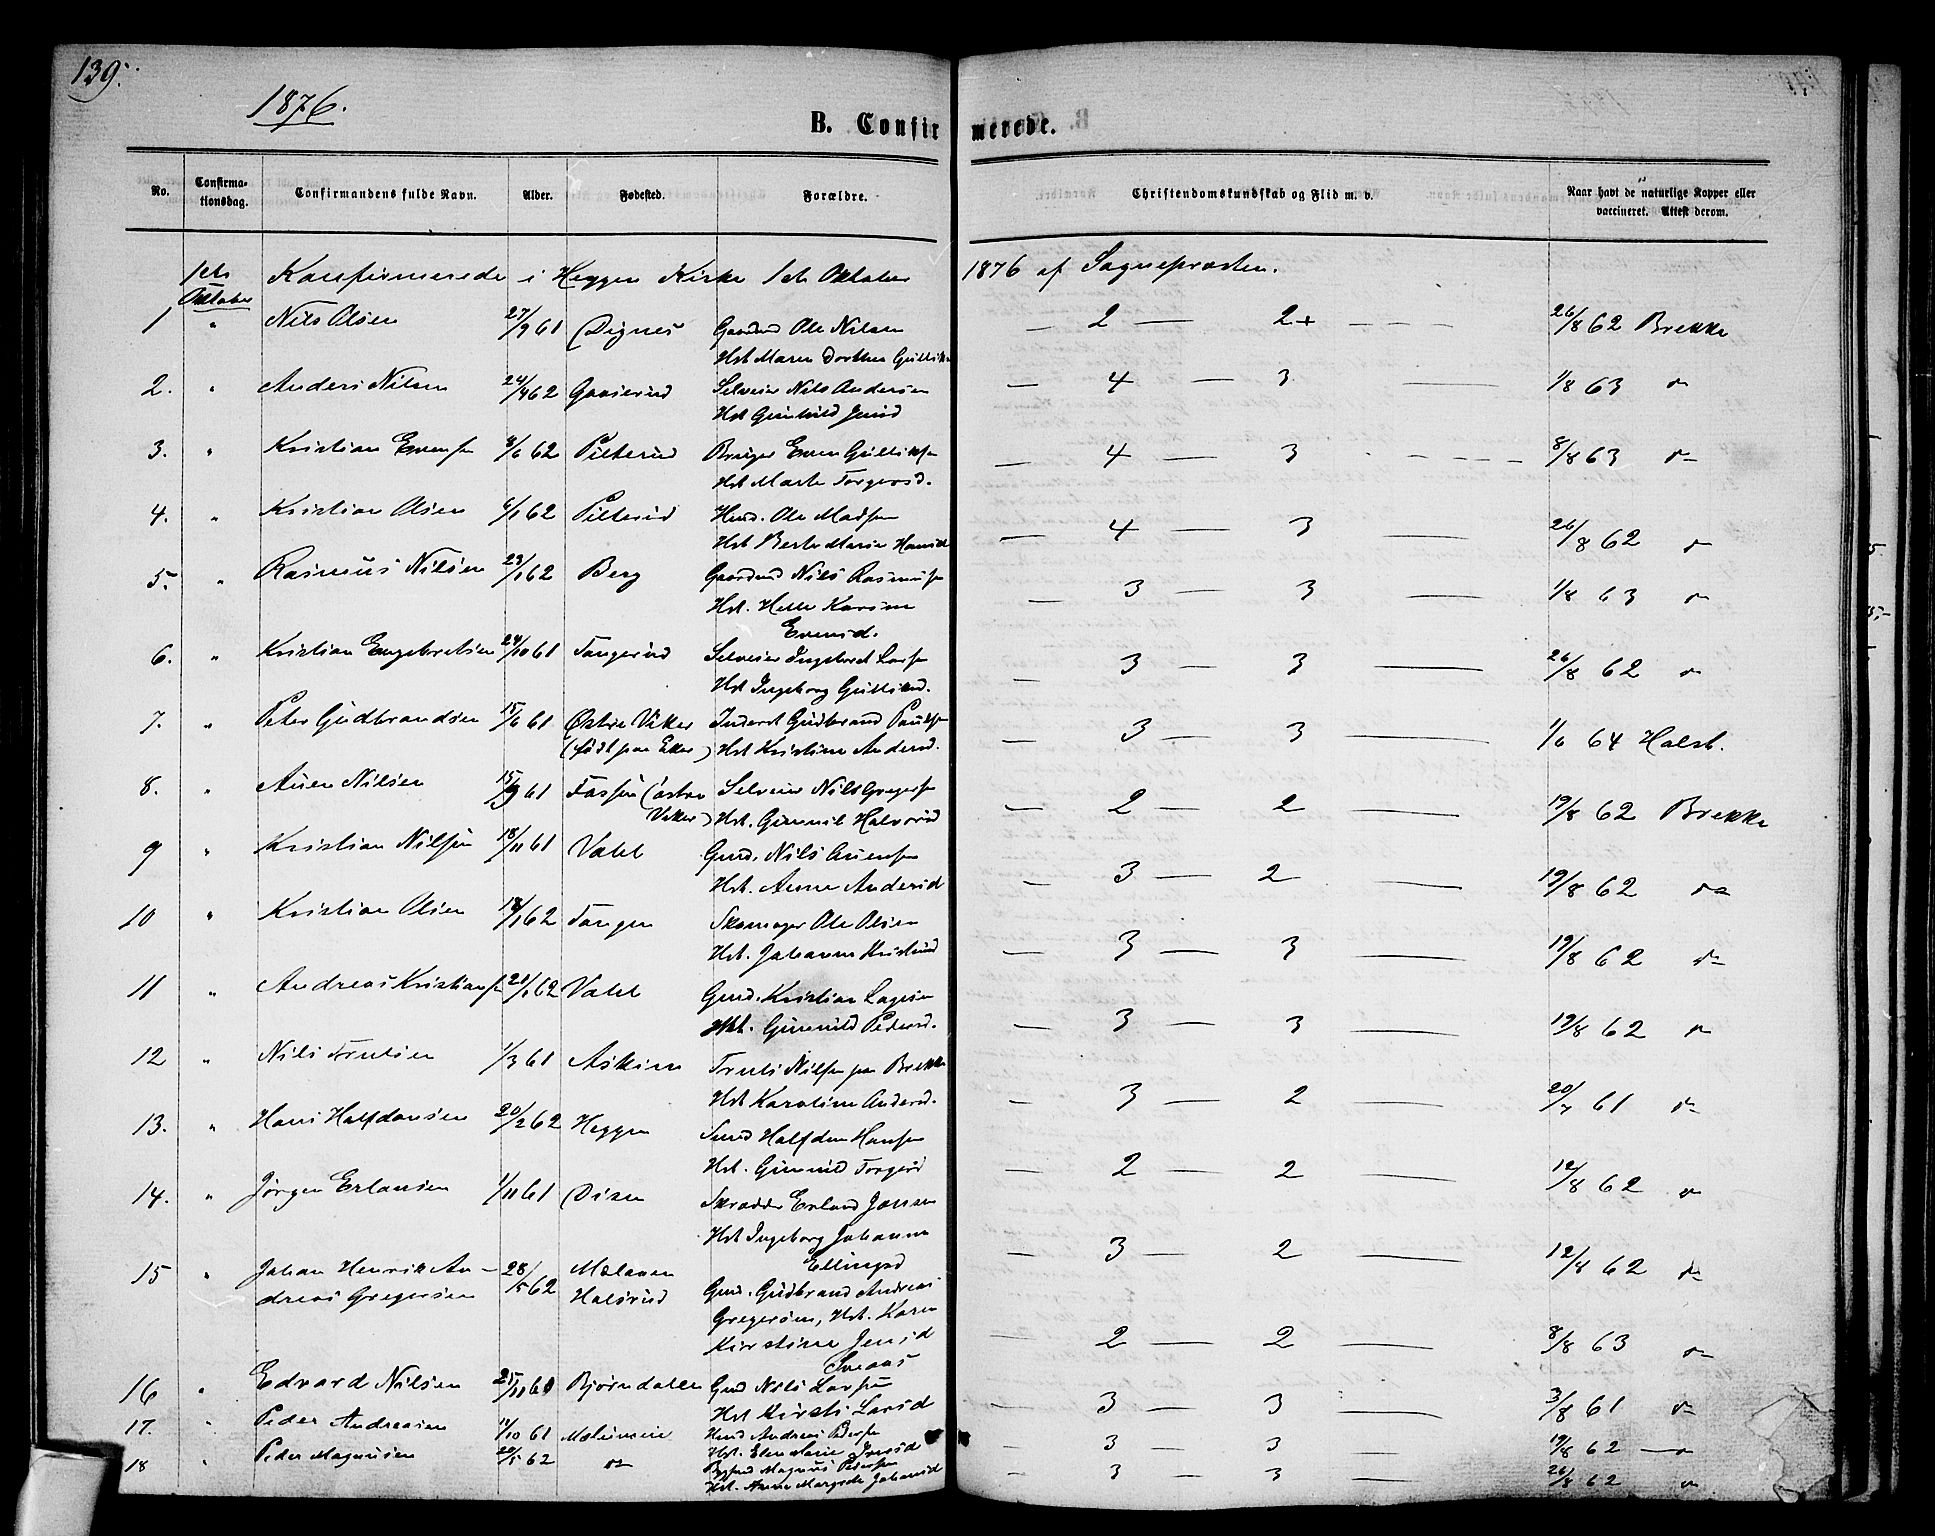 139.
1876.
B. Confirmerede.
No. Confirmationsdag. Confirmandens fulde Navn. Alder. Fødested. Forældre. Christendomskundskab og Flid m. v. Naar havt de naturlige Kopper eller vaccineret. Attest derom.
1ste Oktober Konfirmerede i Heggen Kirke 1ste Oktober 1876 af Sognepresten.
1 " Nils Olsen 27/9 61 Dignes Gaardmd Ole Nilsen 2 — 2+ 26/8 62 Brekke
Hst Maren Dorthea
2. " Anders Nilsen 24/4 62 Gaaserud Selveier Nils Andersen — 4 — 3 — 1/8 63 do
Hst Gunhild
3. " Kristian Evens. 8/6 62 Pilterud Bruger Even Gulliks. — 4 — 3 8/8 63 do
Hst Marte Torgersd.
4. " Kristian Olsen 6/1 62 Pilterud Husmd. Ole Mads. — 4 — 3 — 26/8 62 do
Hst Berte Marie Hansd
5. " Rasmus Nilsen 23/1 62 Berg Gaardmd Nils Rasmus. — 3 3 — 1/8 63 do
Hst. Helle Karine
Evensd.
6. " Kristian Engebretsen 24/10 61 Tangerud Selveier Ingebret Lars. — 3 — 3 — 26/8 62 do
Hst Ingeborg Gulliksd.
7. " Peter Gudbrandsen 15/6 61 Østre Viker Inderst Gudbrand Pauls. 3 — 3 — 1/6 64 Halst.
(født paa Eker) Hst Kristine Andersd.
8. " Auen Nilsen 15/9 61 Fossen (østre Selveier Nils Gregers. — 2 — 2 — 19/8 62 Brekke
Viker) Hst. Gunnil Halvorsd
9 " Kristian Nilsen 18/11 61 Vatel Gmd. Nils Auens. — 3 — 2 — 19/8 62 do
Hst. Anne Andersd
10 " Kristian Olsen 18/1 62 Tangen Skomager Ole Olsen — 3 — 3 — 19/8 62 do
Hst. Johanne
11 " Andreas Kristians. 62 Vatel Gmd. Kristian — 3 — 3 — 19/8 62 do
Hst. Gunnild Pedersd.
12 " Nils Trulsen 1/3 61 Askim Truls Nilsen paa Brekke — 3 — 2 — 20/7 61 do
Hst Karoline Andersd.
13. " Hans Halfdansen 20/2 62 Heggen Halfdan Hansen — 2 — 2 — 12/8 62 do
Hst. Gunnild Torgersd
14. " Jørgen Erlansen 1/11 61 Disen Skrædder Erland Jansen — 3 — 2 — 12/8 62 do
Hst Ingeborg Johanne
Ellingsd
15 " Johan Henrik An- 28/5 62 Gmd. Gudbrand Andreas — 2 — 2 — 8/8 63 do
dreas Gregersen Halsrud Gregersen, Hst. Karen
Kirstine Jensd
16 " Edvard Nilsen 25/11 60 Bjørndalen Gmd Nils Larsen — 3 — 3 — 3/8 61 do
Hst Kirsti Larsd
17. " Peder Andreasen 10 61 Husmd Andreas Peders. — 3 — 3 — 19/8 62 — do
Hst. Elen Marie
18 " Peder Magnusen 20/5 62 do Magnus Pedersen — 3 — 3 — 26/8 62 do
Hst. Anne Margrete Johansd